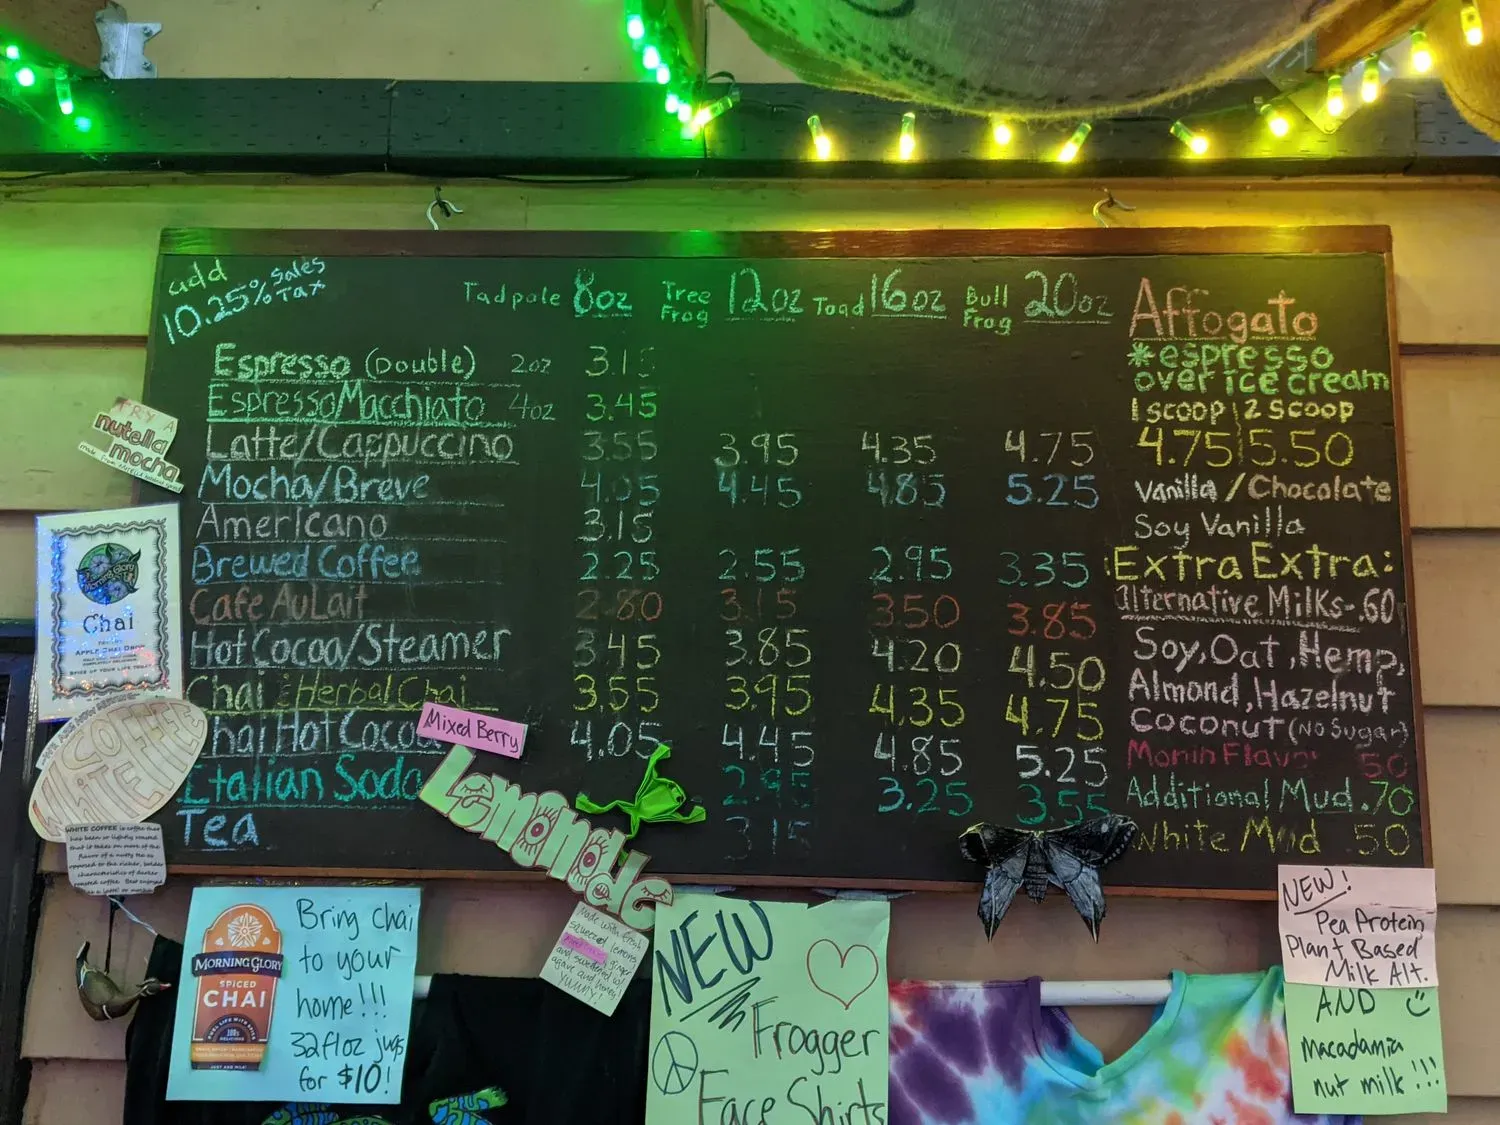 add
10.25% Sales Tax
Tadpole 8oz Tree Frog 12oz Toad 16oz Bull Frog 20oz
Espresso (Double) 2oz 3.15
Espresso Macchiato 4oz 3.45
Latte/Cappuccino 3.55 3.95 4.35 4.75
Mocha/Breve 4.05 4.45 4.85 5.25
Americano 3.15
Brewed Coffee 2.25 2.55 2.95 3.35
Cafe Au Lait 2.80 3.15 3.50 3.85
Hot Cocoa/Steamer 3.45 3.85 4.20 4.50
Chai : Herbal Chai 3.55 3.95 4.35 4.75
Chai Hot Cocoa 4.05 4.45 4.85 5.25
Italian Soda 2.95 3.25 3.55
Tea 3.15
Affogato
*espresso
over ice cream
1 scoop | 2 scoop
4.75 | 5.50
Vanilla / Chocolate
Soy Vanilla
Extra Extra:
alternative Milks - .60
Soy, Oat, Hemp,
Almond, Hazelnut
Coconut (No Sugar)
Monin Flavor .50
Additional Mud .70
White Mud .50
TRY A
nutella
mocha
Morning Glory
Chai
SPICE UP YOUR LIFE TODAY
COFFEE
WHITE
WHITE COFFEE is coffee that
has been so lightly roasted
that it takes on more of the
flavor of a nutty tea as
opposed to the richer, bolder
characteristics of darker
roasted coffee. Best enjoyed
Mixed Berry
Lemonade
Made with fresh
squeezed lemons
ginger
and sweetened w/
agave and honey!
YUMMY!
MORNING GLORY
SPICED
CHAI
Bring chai
to your
home!!!
32floz jugs
for $10!
NEW
Frogger
Face Shirts
NEW!
Pea Protein
Plant Based
Milk Alt.
AND
Macadamia
nut milk!!!